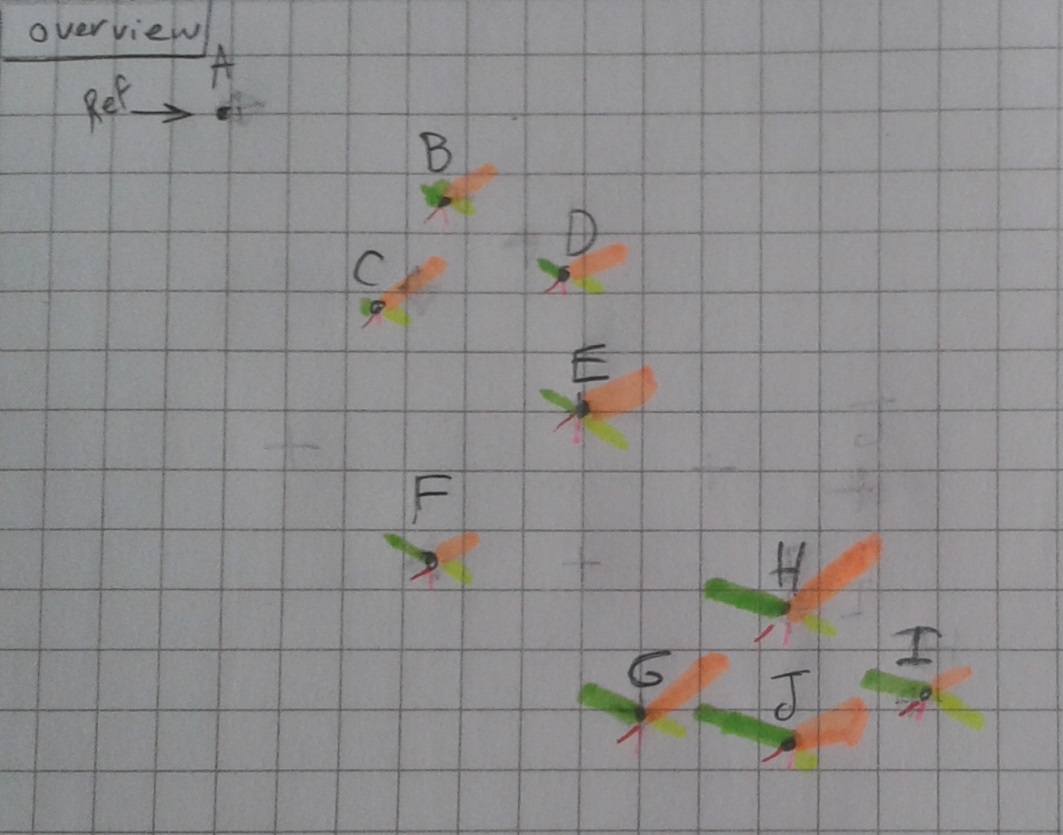 overview
A
Ref
B
D
C
E
F
H
I
G
J